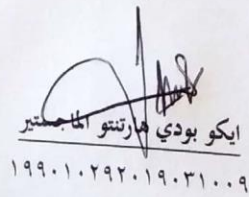 ايكو بودي هارتنتو الماجستير
١٩٩٠١٠٢٩٢٠١٩٠٣١٠٠٩